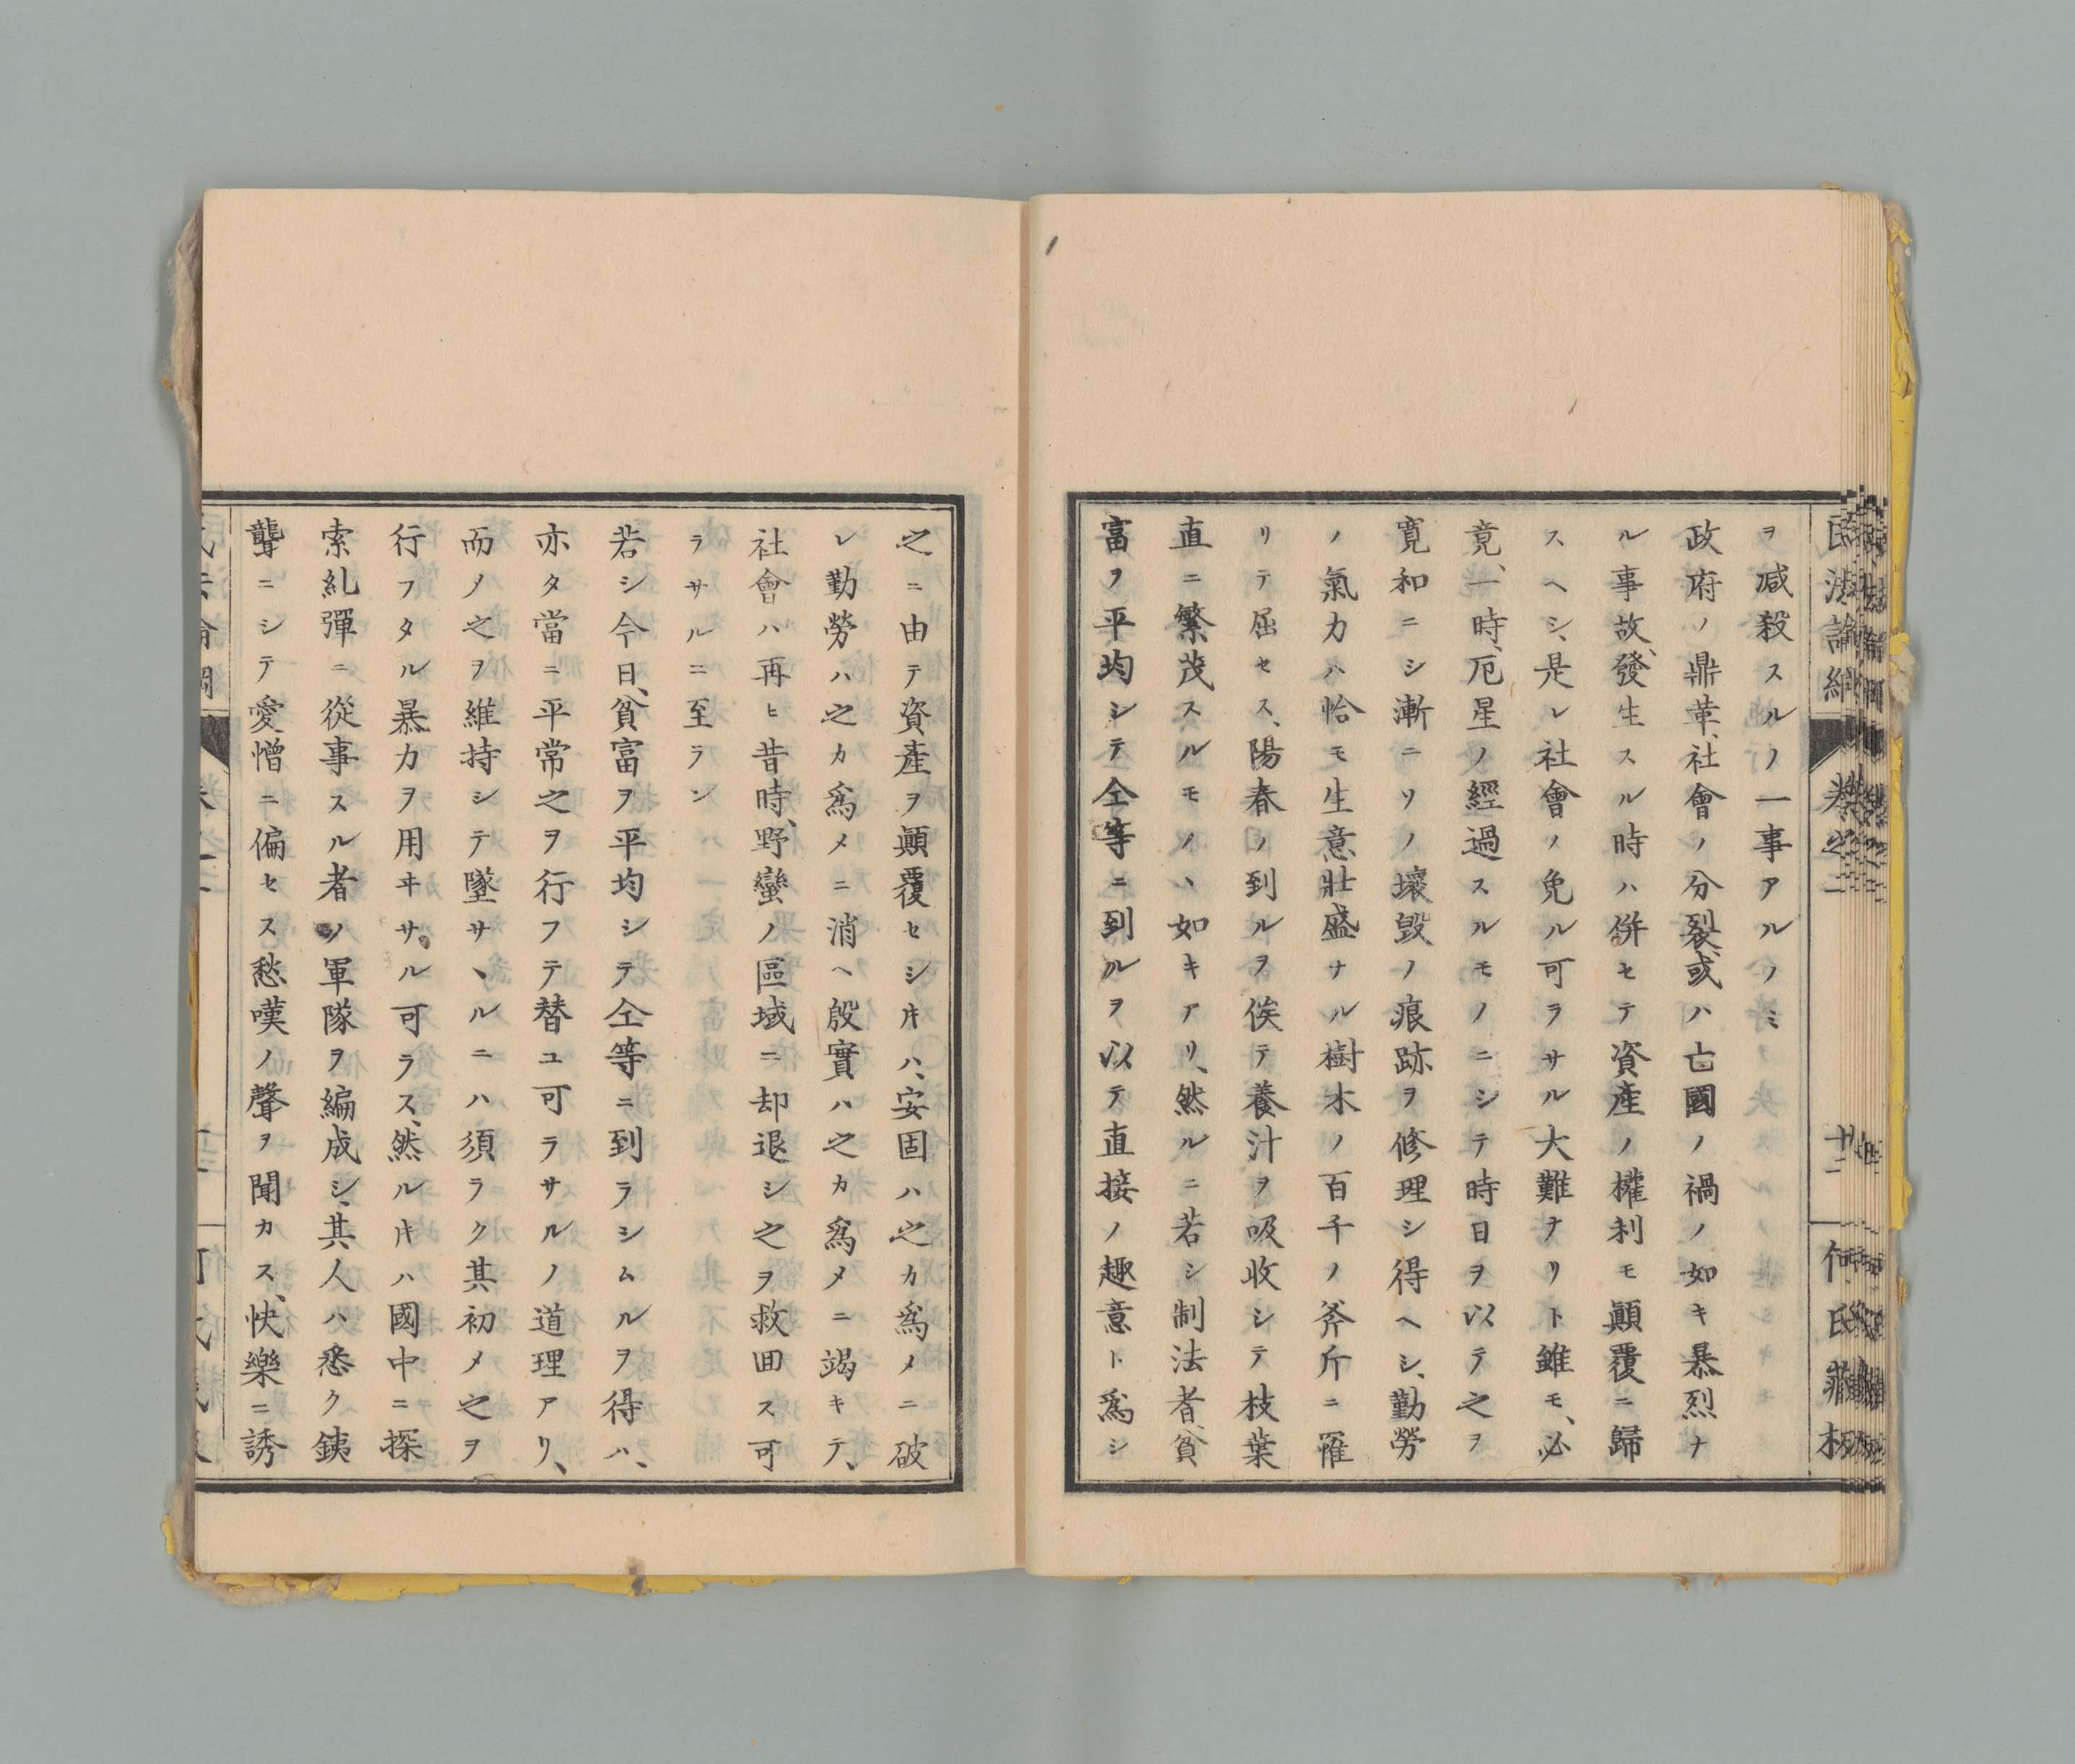 民法論綱 卷之二 十二 何氏藏板
ヲ減殺スルノ一事アルノミ
政府ノ鼎革、社會ノ分裂、或ハ亡國ノ禍ノ如キ暴烈ナ
ル事故、發生スル時ハ併セテ資產ノ權利モ顚覆ニ歸
スヘシ、是レ社會ノ免ル可ラサル大難ナリト雖モ、必
竟、一時、厄星ノ經過スルモノニシテ時日ヲ以テ之ヲ
寬和ニシ漸ニソノ壞毀ノ痕跡ヲ修理シ得ヘシ、勤勞
ノ氣力ハ恰モ生意壯盛ナル樹木ノ百千ノ斧斤ニ罹
リテ屈セス、陽春ノ到ルヲ俟テ養汁ヲ吸收シテ枝葉
直ニ繁茂スルモノヽ如キアリ、然ルニ若シ制法者、貧
富ヲ平均シテ仝等ニ到ルヲ以テ直接ノ趣意ト爲シ
之ニ由テ資產ヲ顚覆セシ𪜈ハ、安固ハ之カ爲メニ破
レ勤勞ハ之カ爲メニ消ヘ殷實ハ之カ爲メニ竭キテ、
社會ハ再ヒ昔時、野蠻ノ區域ニ却退シ之ヲ救回ス可
ラサルニ至ラン
若シ今日、貧富ヲ平均シテ仝等ニ到ラシムルヲ得ハ、
亦タ當ニ平常之ヲ行フテ替ユ可ラサルノ道理アリ、
而ノ之ヲ維持シテ墜サヽルニハ、須ラク其初メ之ヲ
行フタル暴力ヲ用ヰサル可ラス、然ル𪜈ハ國中ニ探
索糺彈ニ從事スル者ノ軍隊ヲ編成シ、其人ハ悉ク銕
聾ニシテ愛憎ニ偏セス愁嘆ノ聲ヲ聞カス、快樂ニ誘